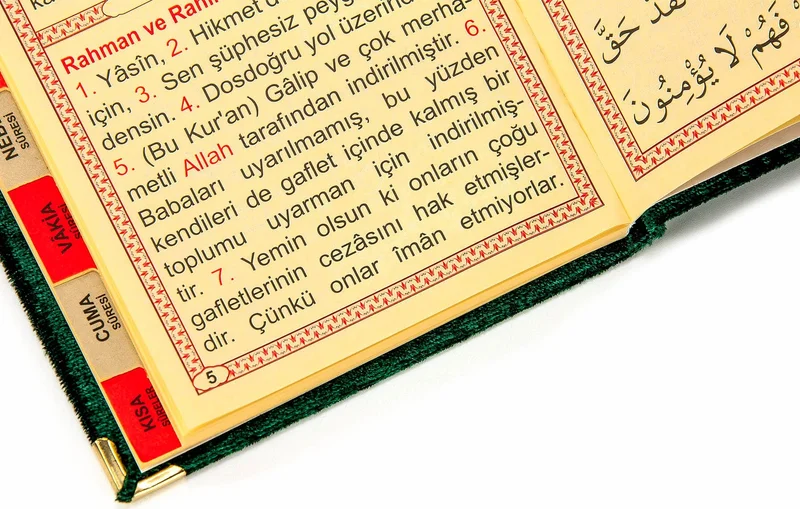 Rahman ve Rahi
1. Yâsîn, 2. Hikmet
için, 3. Sen şüphesiz peyg
densin. 4. Dosdoğru yol üzerind
5. (Bu Kur'an) Gâlip ve çok merha-
metli Allah tarafından indirilmiştir. 6.
Babaları uyarılmamış, bu yüzden
kendileri de gaflet içinde kalmış bir
toplumu uyarman için indirilmiş-
tir. 7. Yemin olsun ki onların çoğu
gafletlerinin cezâsını hak etmişler-
dir. Çünkü onlar îmân etmiyorlar.
5
حَقَّ
فَهُمْ لَا يُؤْمِنُونَ
SÛRESİ
VÂKIA
SÛRESİ
CUMA
SÛRESİ
KISA
SÛRELER